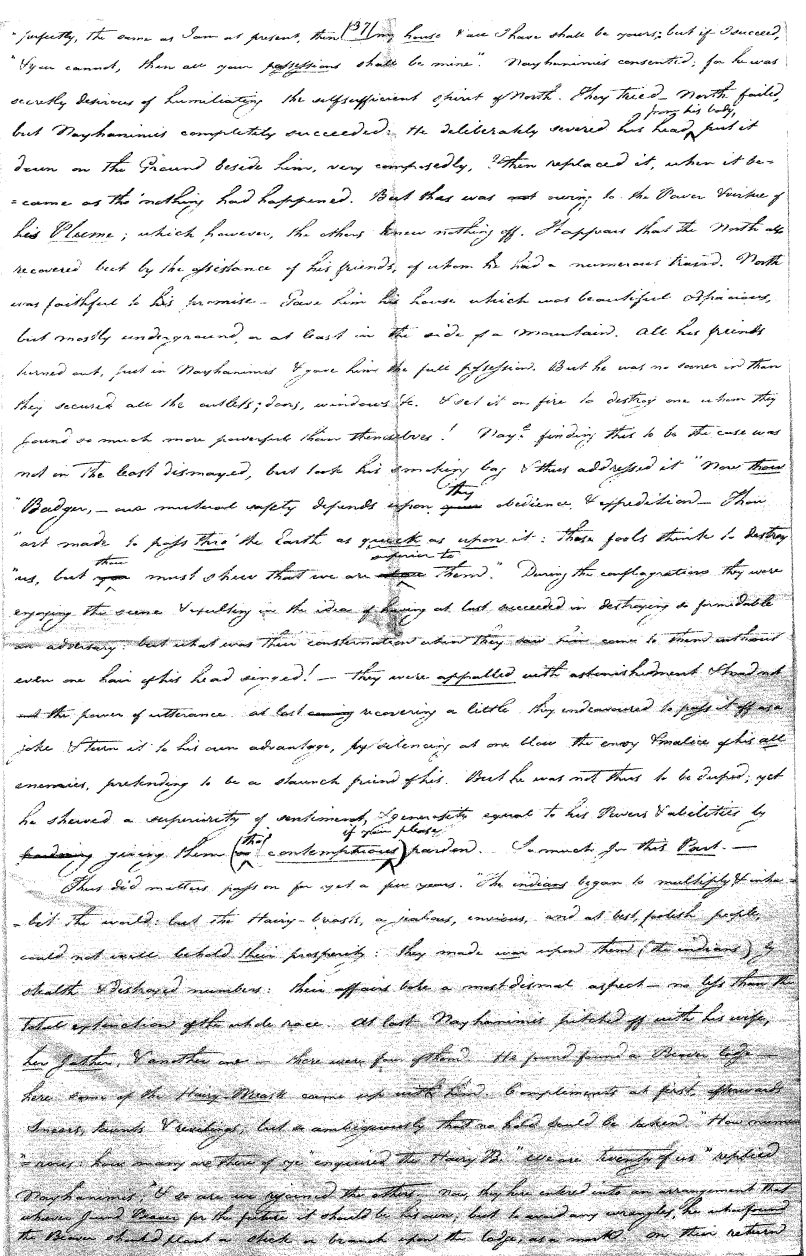 (37)
"perfectly, the same as I am at present, then my house & all I have shall be yours; but if I succeed,
"& you cannot, then all your possessions shall be mine". Nayhanimis consented; for he was
secretly desirous of humiliating the selfsufficient spirit of North. They tried – North failed,
but Nayhanimis completely succeeded: He deliberately severed his head from his body, put it
down on the Ground beside him, very composedly, & then replaced it, when it be-
=came as tho' nothing had happened. But this was not owing to the Power & virtue of
his Plume; which however, the others knew nothing off. It appears that the North also
recovered but by the assistance of his friends, of whom he had a numerous train. North
was faithful to his promise – Gave him his house which was beautiful & spacious,
but mostly underground, or at least in the side of a mountain. All his friends
turned out, put in Nayhanimis & gave him the full possession. But he was no sooner in than
they secured all the outlets; doors, windows &c. & set it on fire to destroy one whom they
found so much more powerful than themselves! Nay.s finding this to be the case was
not in the least dismayed, but took his smoking bag & thus addressed it "Now thou
"Badger, – our mutual safety depends upon thy obedience & expedition – Thou
"art made to pass thro' the Earth as quick as upon it: These fools think to destroy
"us, but thou must shew that we are superior to them". During the conflagration they were
enjoying the scene & exulting in the idea of having at last succeeded in destroying so formidable
an adversary: but what was their consternation when they saw him come to them without
even one hair of his head singed! – they were appalled with astonishment & had not
the power of utterance. at last recovering a little they endeavoured to pass it off as a
joke & turn it to his own advantage, by silencing at one blow the envy & malice of his all
enemies, pretending to be a staunch friend of his. But he was not thus to be duped; yet
he shewed a superiority of sentiment, & generosity equal to his Powers & abilities by
giving them (tho' contemptious if you please) pardon. So much for this Part. –
Thus did matters pass on for yet a few years. The indians began to multiply & inha-
-bit the world: but the Hairy-breasts, a jealous, envious, and at best, foolish people,
could not well behold their prosperity: they made war upon them (the indians) by
stealth & destroyed numbers: their affairs bore a most dismal aspect – no less than the
total extinction of the whole race. At last Nayhanimis pitched off with his wife,
her father, & another one – there were four of them. He found a Beaver lodge –
here some of the Hairy-Breasts came up with him. Compliments at first, afterwards
Sneers, taunts & revilings; but so ambiguously that no hold could be taken. "How nume
"=rous: how many are there of ye" enquired the Hairy B: "We are twenty of us" replied
Nayhanimis; "& so are we rejoined the others, now, they here entered into an arrangement that
whoever found Beaver for the future it should be his own; but to avoid any wrangles, he who found
the Beaver should plant a stick or branch upon the lodge, as a mark. On their return